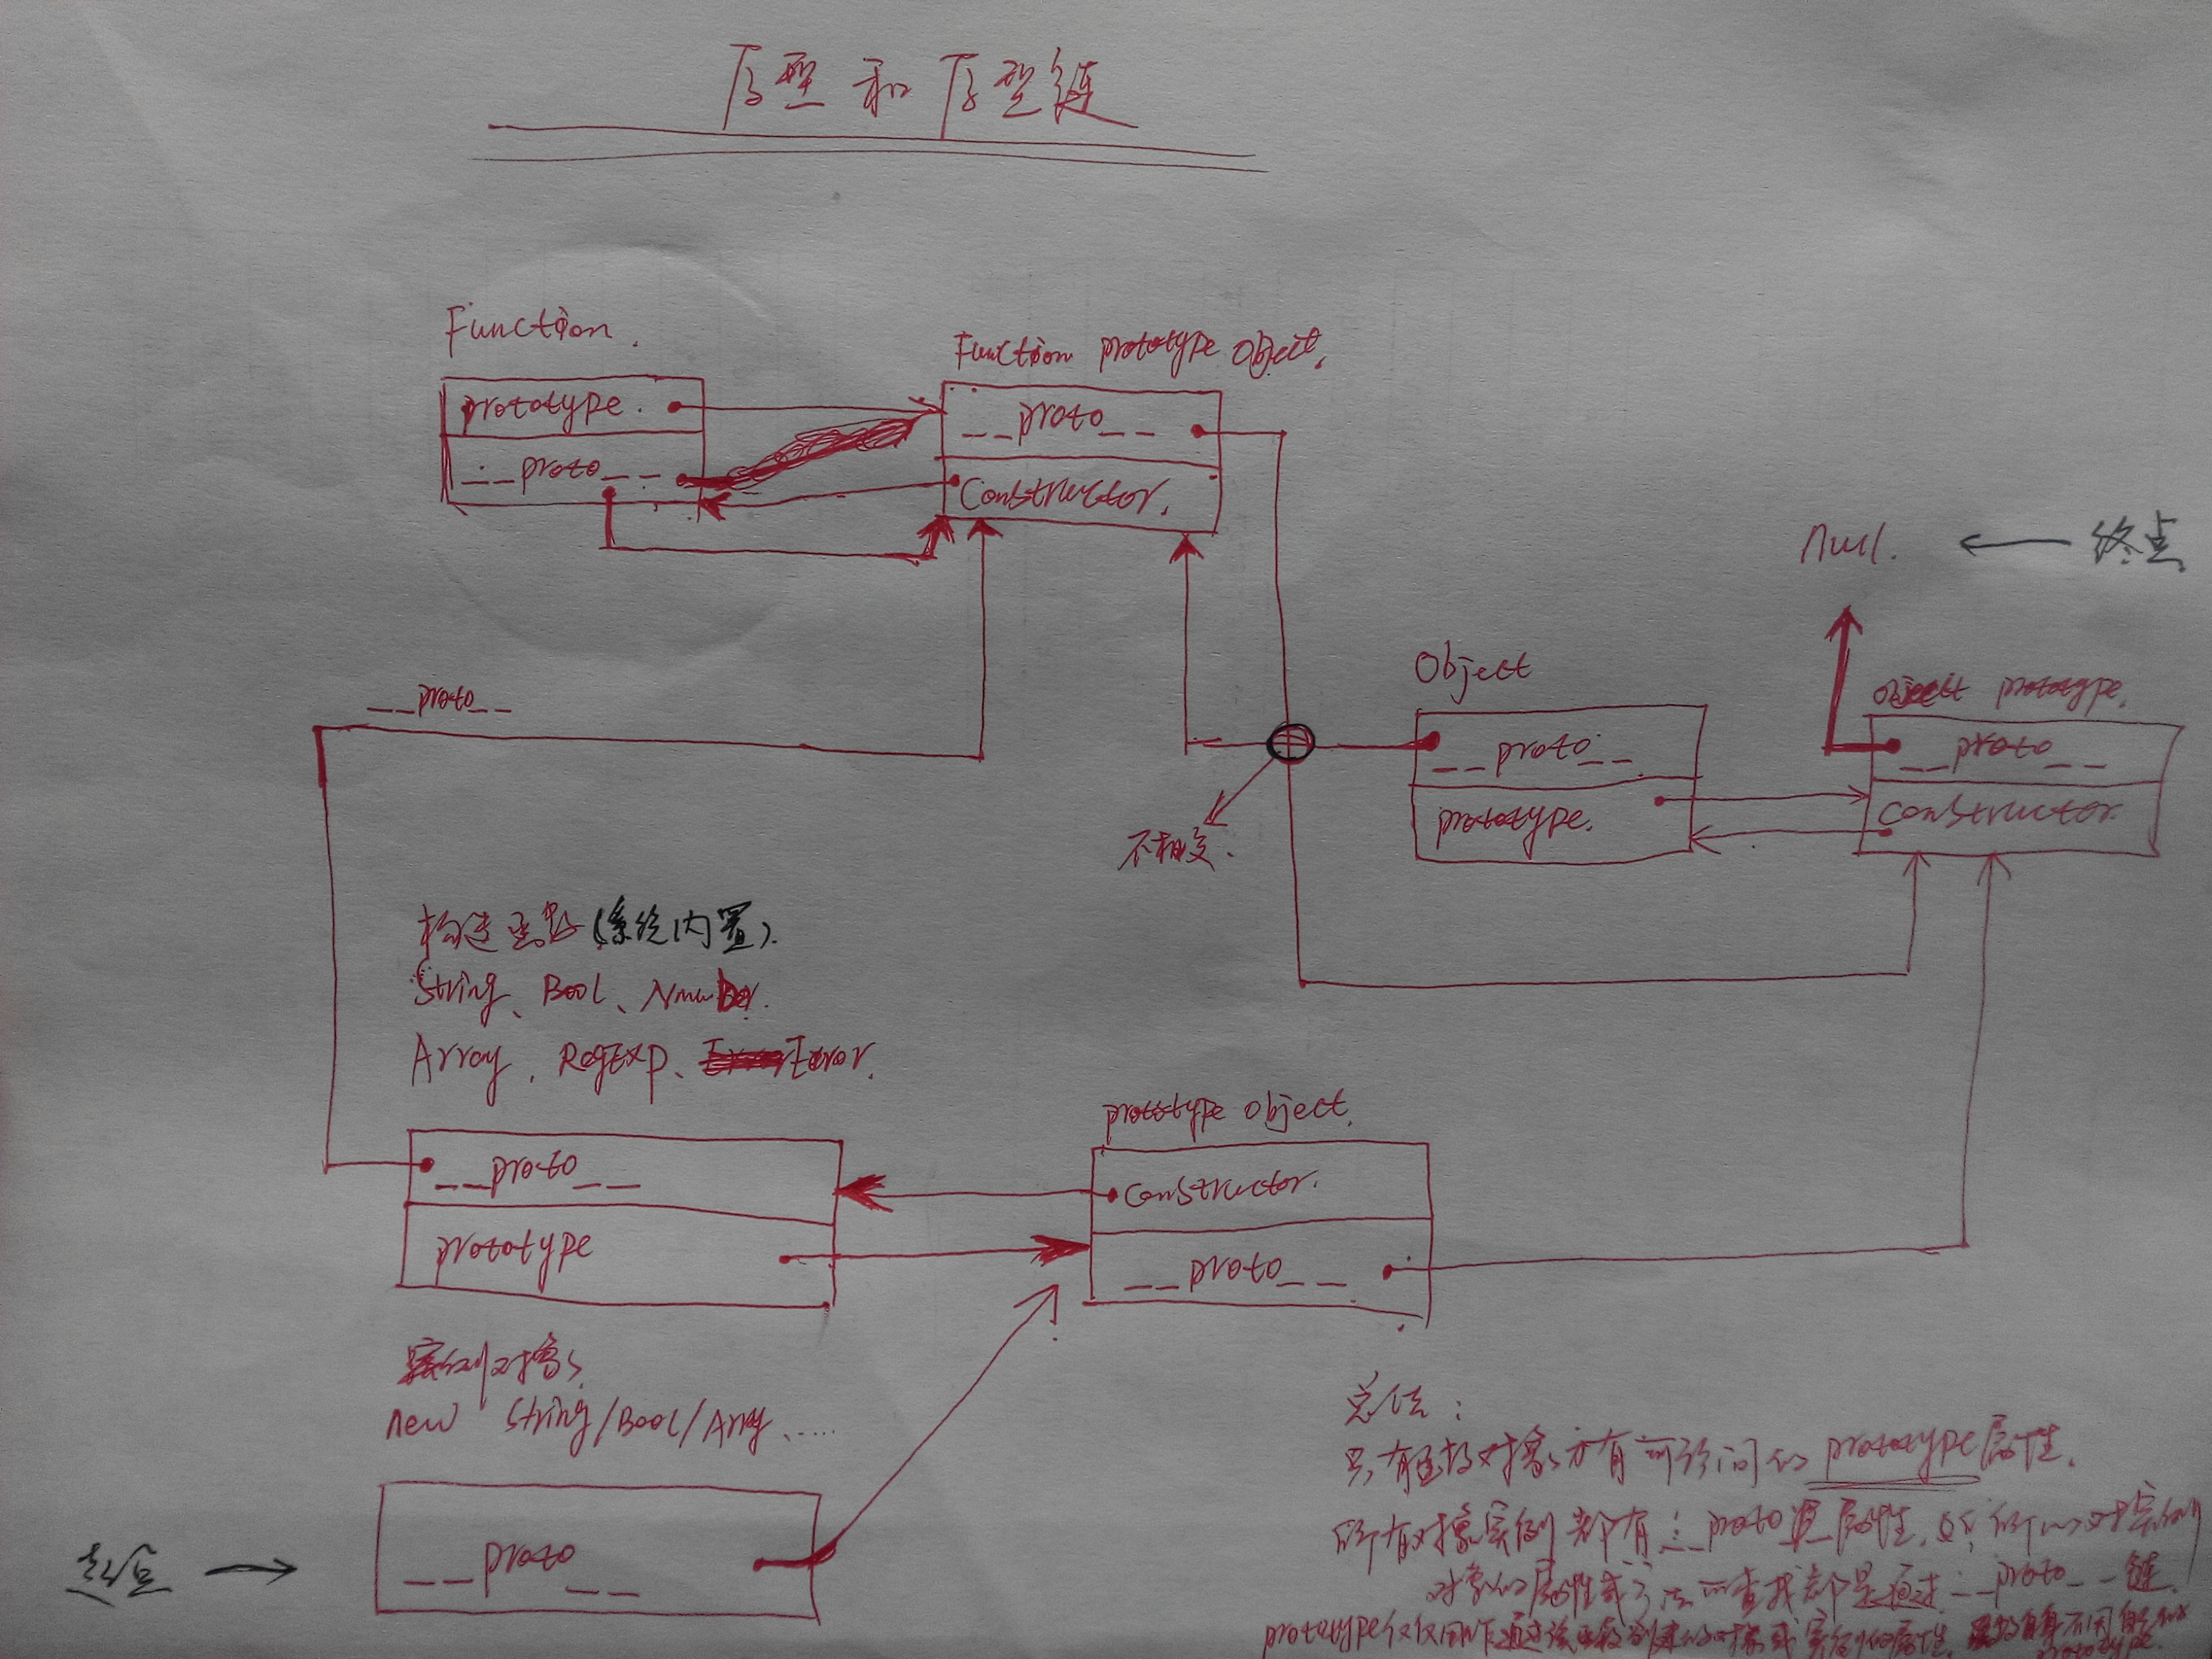 原型和原型链
Function.
Function prototype object.
prototype.
__proto__
__proto__
Constructor.
null. ← 终点
Object
object prototype.
__proto__
__proto__
__proto__
prototype.
constructor.
不相交.
构造函数(系统内置).
String、Bool、Number.
Array、RegExp、Error.
prototype object.
__proto__
prototype
constructor.
__proto__
实例对象
new String/Bool/Array、.....
起点 →
__proto__
总结:
只有函数对象才有可访问的prototype属性.
所有对象实例都有__proto__属性,
对象的属性或方法的查找都是通过__proto__链.
prototype仅仅用作通过该函数创建的对象或实例的属性.
prototype.